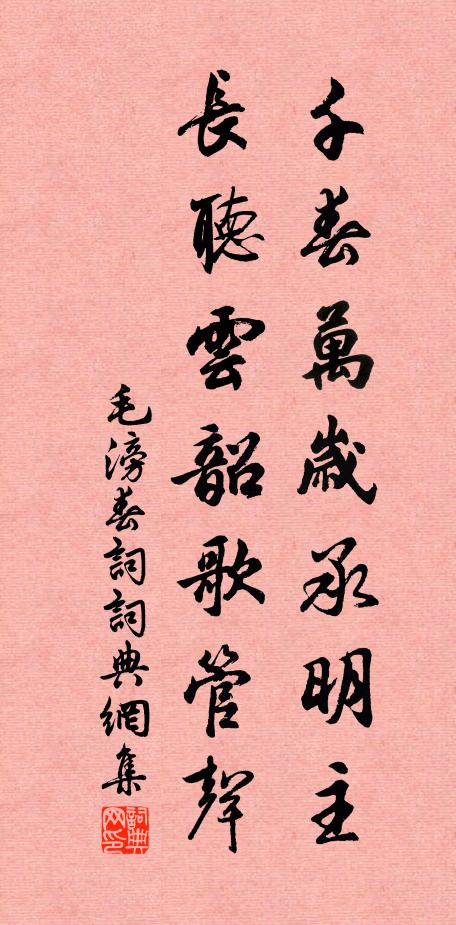 千春萬歲承明主
長聽雲韶歌管聲
毛滂春詞詞典網集
詞典网印